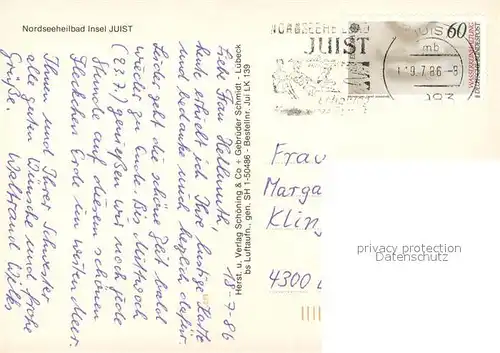 Nordseeheilbad Insel JUIST
18-7-86
Liebe Frau Hellmuth,
heute erhielt ich Ihre lustige Karte
und bedanke mich herzlich dafür.
Leider geht die schöne Zeit bald
wieder zu Ende. Bis Mittwoch
(23.7.) genießen wir noch jede
Stunde auf diesem schönen
Fleckchen Erde im weiten Meer.
Ihnen und Ihrer Schwester
alle guten Wünsche und frohe
Grüße.
Waltraud Wilks
Herst. u. Verlag Schöning & Co + Gebrüder Schmidt - Lübeck
bs Luftaufn., gen. SH 1-50486 - Bestellnr. Jui LK 139
NORDSEEHEILBAD
JUIST
60
DEUTSCHE BUNDESPOST
JUIST
mb
19.7.86-8
Frau
Marga
Kling
4300
privacy protection
Datenschutz